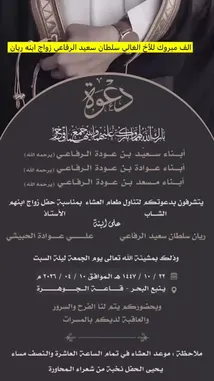 الف مبروك للأخ الغالي سلطان سعيد الرفاعي زواج ابنه ريان
دعوة
بارك الله لهما وبارك عليهما وجمع بينهما في خير
أبناء سعيد بن عودة الرفاعي (يرحمه الله)
أبناء عوادة بن عودة الرفاعي (يرحمه الله)
أبناء مسعد بن عودة الرفاعي (يرحمه الله)
يتشرفون بدعوتكم لتناول طعام العشاء بمناسبة حفل زواج ابنهم
الشاب
الأستاذ
على إبنة
ريان سلطان سعيد الرفاعي
علي عوادة الحبيشي
وذلك بمشيئة الله تعالى يوم الجمعة ليلة السبت
٢٢ / ١٠ / ١٤٤٧ هـ الموافق ١٠ / ٠٤ / ٢٠٢٦ م
ينبع البحر - قاعة الجوهرة
وبحضوركم يتم لنا الفرح والسرور
والعاقبة لديكم بالمسرات
ملاحظة : موعد العشاء في تمام الساعة العاشرة والنصف مساء
يحيى الحفل نخبة من شعراء المحاورة